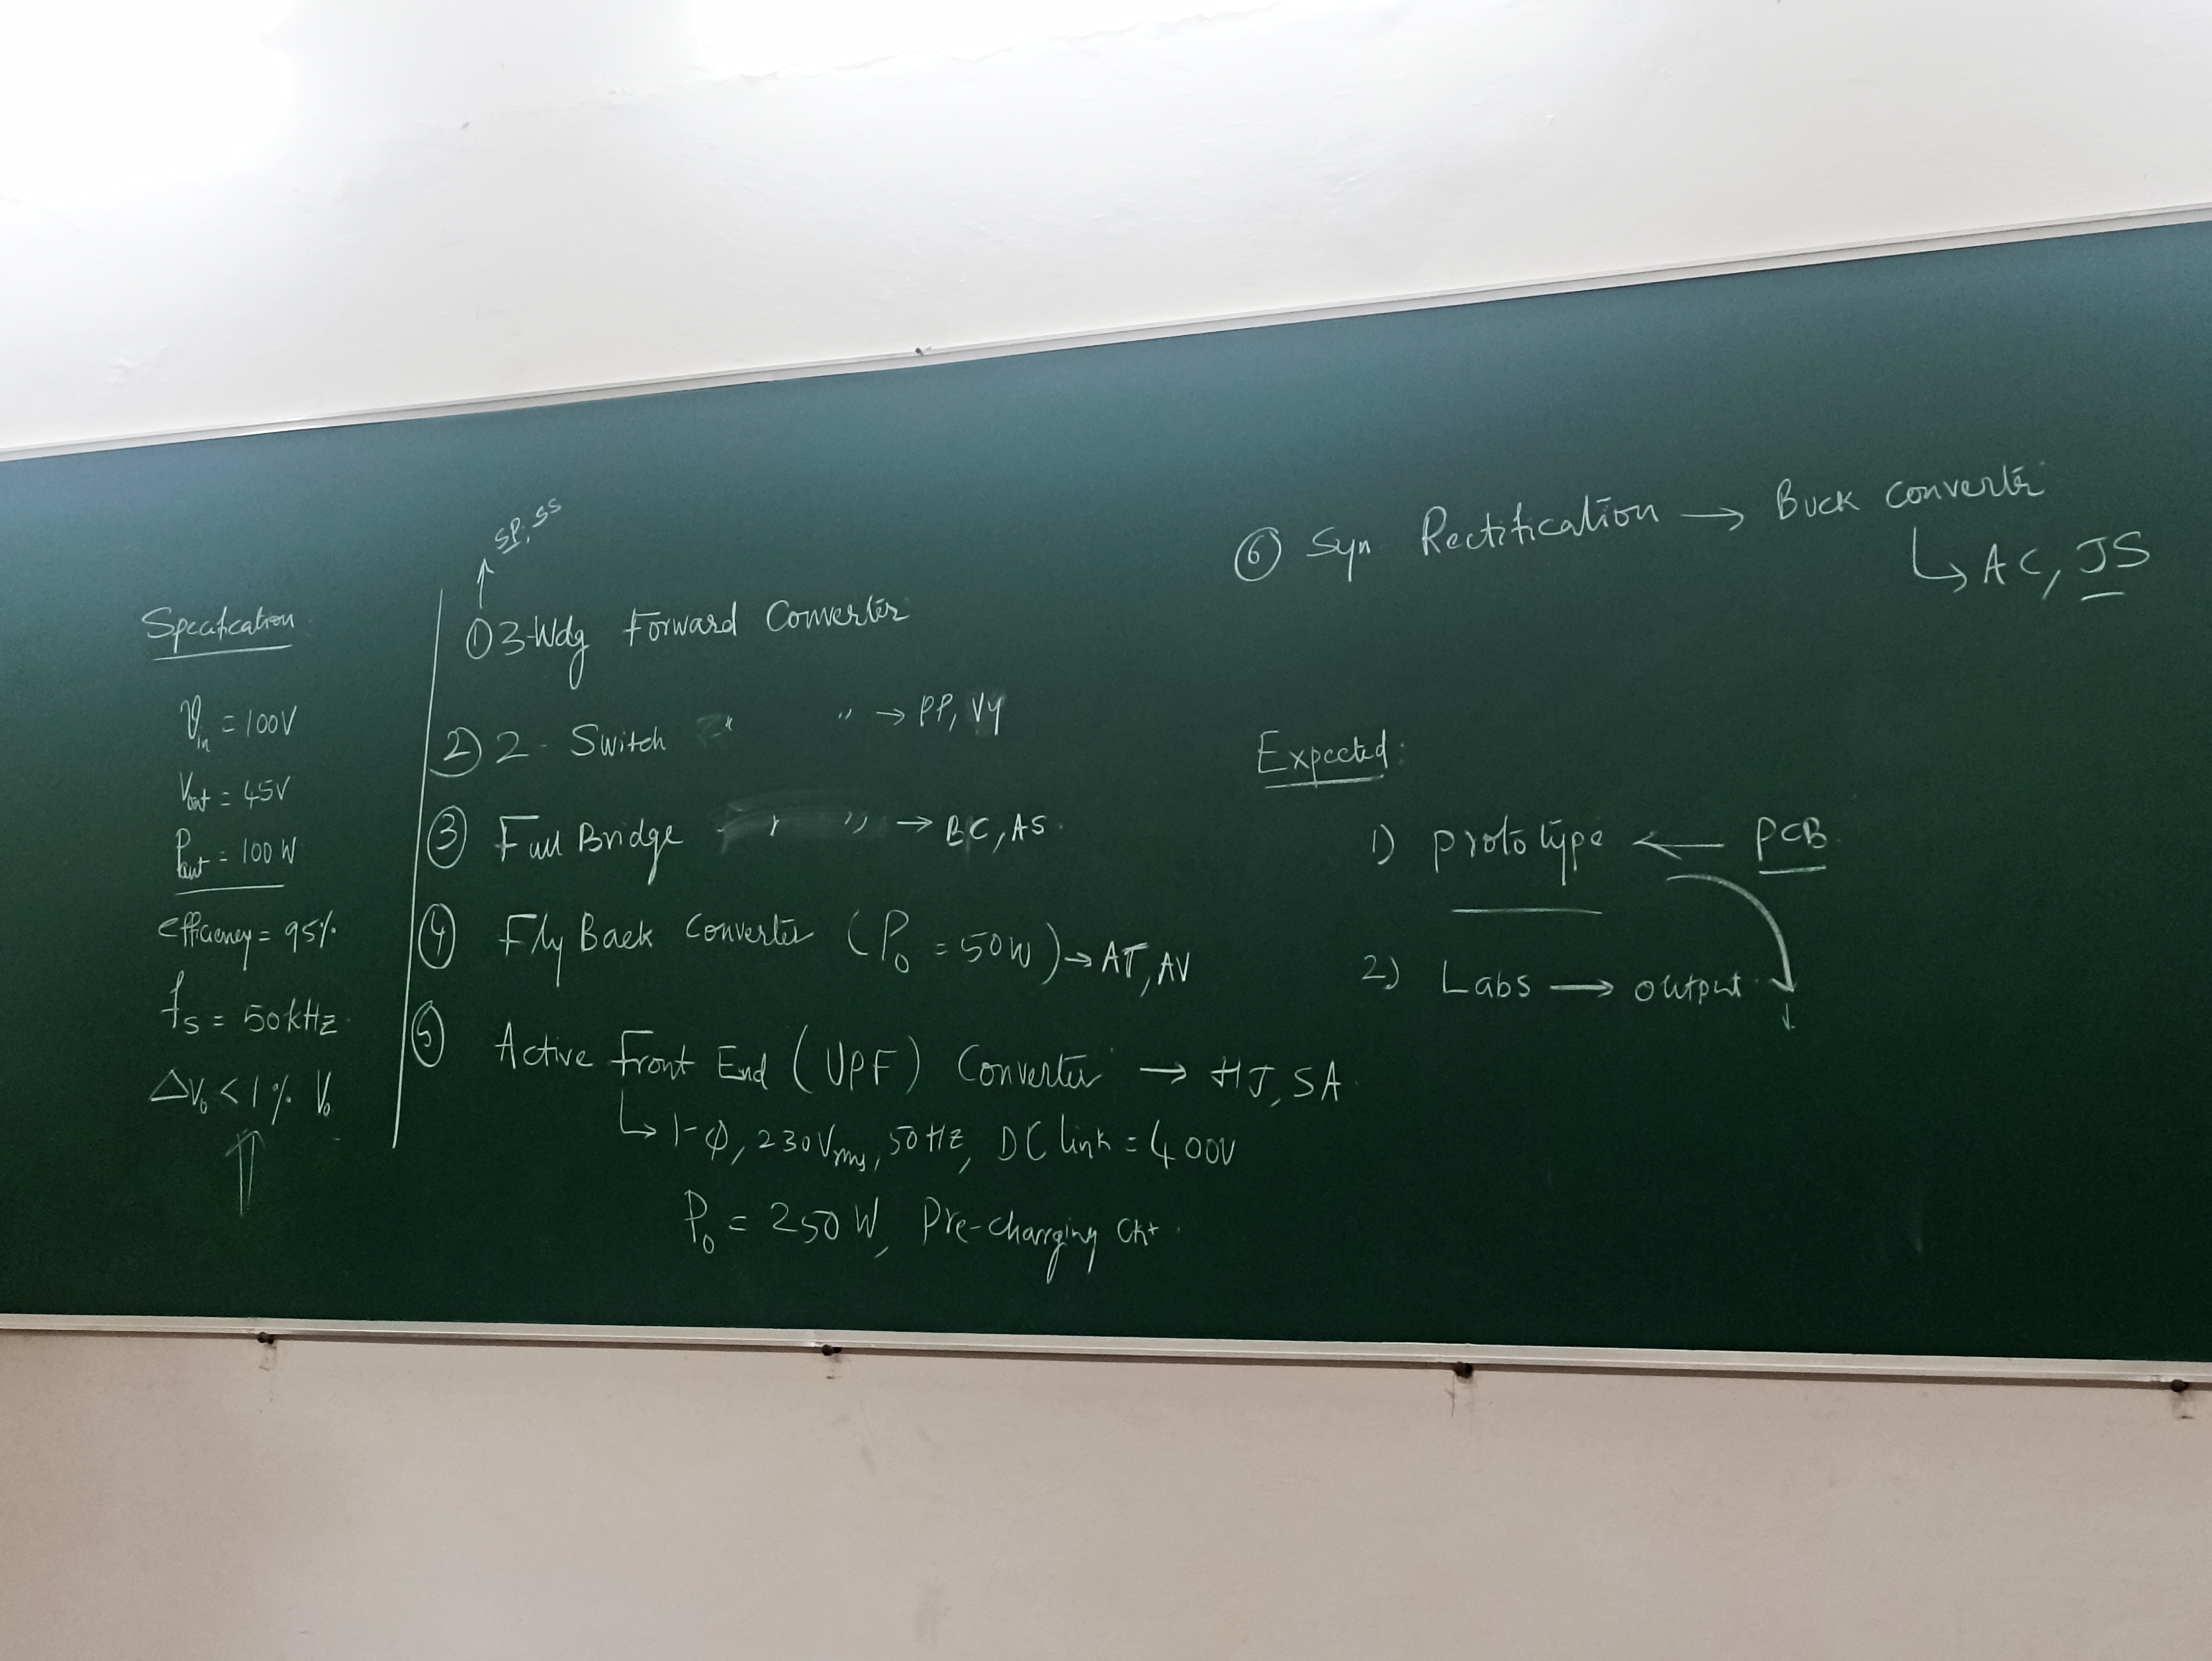 Specification
Vin = 100V
Vout = 45V
Pout = 100 W
efficiency = 95%
fs = 50kHz
ΔVo < 1% Vo
SP, SS
① 3-Wdg Forward Converter
② 2 - Switch " " → PP, VY
③ Full Bridge " " → BC, AS
④ Fly Back Converter (Po = 50W) → AT, AV
⑤ Active Front End (UPF) Converter → HJ, SA
↳ 1-φ, 230Vrms, 50Hz, DC link = 400V
Po = 250W, Pre-charging Ckt
⑥ Syn Rectification → Buck Converter
↳ AC, JS
Expected:
1) Prototype ← PCB
2) Labs → output